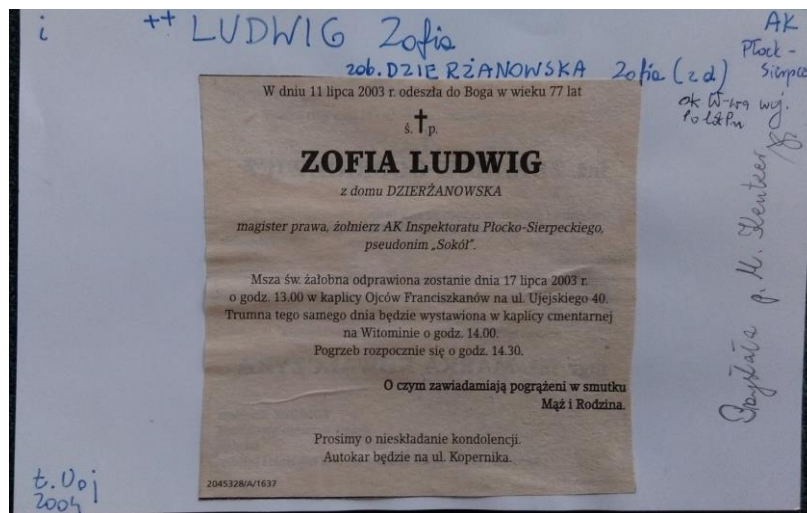 i ++ LUDWIG Zofia AK
Płock-
Sierpec
zob. DZIERŻANOWSKA Zofia (z d)
ok W-wa woj.
W dniu 11 lipca 2003 r. odeszła do Boga w wieku 77 lat
ś. † p.
ZOFIA LUDWIG
z domu DZIERŻANOWSKA
magister prawa, żołnierz AK Inspektoratu Płocko-Sierpeckiego,
pseudonim „Sokół".
Msza św. żałobna odprawiona zostanie dnia 17 lipca 2003 r.
o godz. 13.00 w kaplicy Ojców Franciszkanów na ul. Ujejskiego 40.
Trumna tego samego dnia będzie wystawiona w kaplicy cmentarnej
na Witominie o godz. 14.00.
Pogrzeb rozpocznie się o godz. 14.30.
O czym zawiadamiają pogrążeni w smutku
Mąż i Rodzina.
Prosimy o nieskładanie kondolencji.
Autokar będzie na ul. Kopernika.
2045328/A/1637
Przysłała p. M.
2004